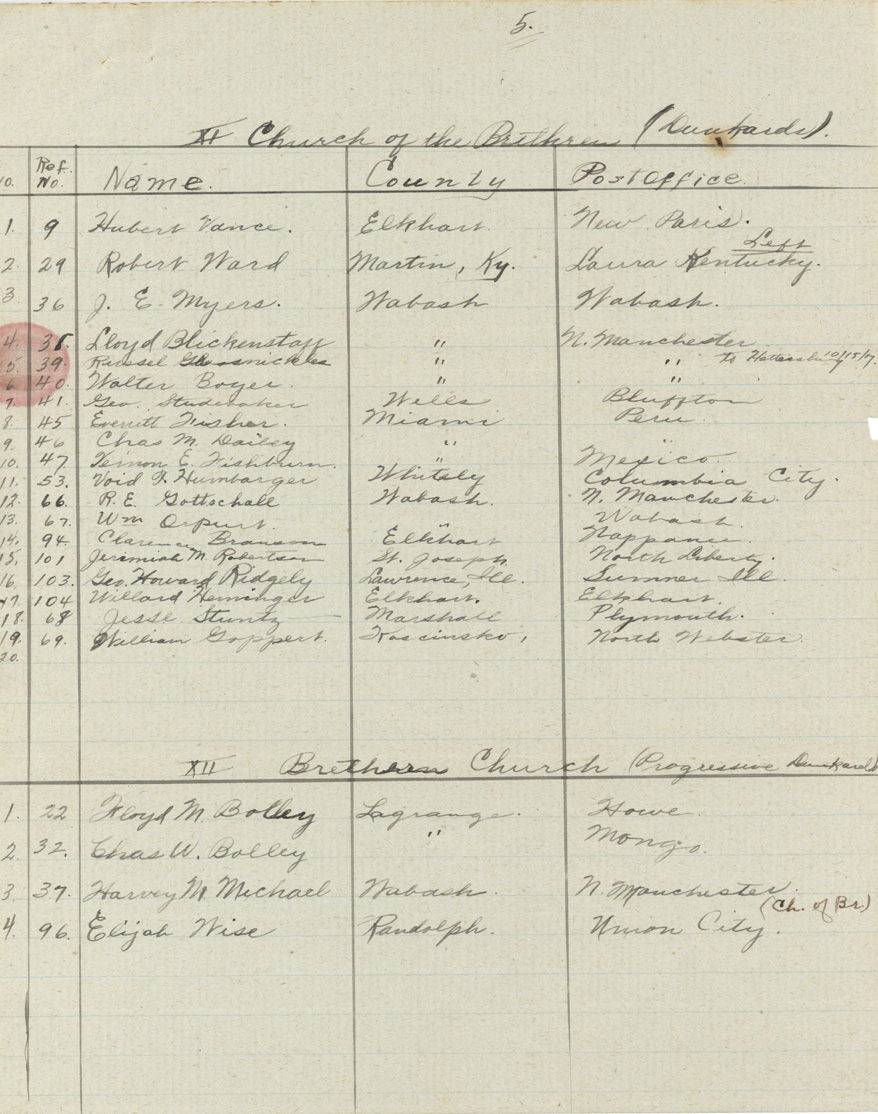 5.
XI Church of the Brethren (Dunkards).
No. Ref. No. Name. County Postoffice.
1. 9 Hubert Vance. Elkhart. New Paris.
Left
2. 29 Robert Ward Martin, Ky. Laura Kentucky.
3 36 J. E. Myers. Wabash Wabash.
4. 38 Lloyd Blickenstaff " N. Manchester
5. 39. Russel " " To 10/15/17.
6 40. Walter Boyer. " "
7. 41. Geo. Studebaker Wells Bluffton
8. 45 Everett Fisher. Miami Peru
9. 46 Chas M. Dailey " "
10. 47 Vernon E. Fishburn. " Mexico.
11. 53. Void F. Humbarger Whitley Columbia City.
12. 66 R. E. Gottschall Wabash. N. Manchester.
13. 67. Wm Orpurt. " Wabash
14. 94. Clarence Branson Elkhart Nappanee
15. 101 Jeremiah M. Robertson St. Joseph. North Liberty.
16. 103. Geo. Howard Ridgely Lawrence, Ill. Sumner Ill.
17. 104 Willard Heminger Elkhart. Elkhart.
18. 68 Jesse Stuntz Marshall Plymouth.
19. 69. William Goppert. Koscinsko, North Webster.
20.
XII Brethern Church (Progressive Dunkards)
1. 22 Floyd M. Bolley Lagrange. Howe.
2. 32. Chas W. Bolley " Mongo.
3. 37. Harvey M. Michael Wabash. N. Manchester.
(Ch. of Br.)
4. 96. Elijah Wise Randolph. Union City.